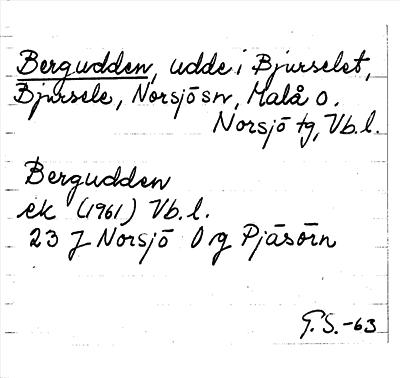 Bergudden, udde i Bjurselet,
Bjursele, Norsjö sn, Malå o.
Norsjö tg, Vb.l.
Bergudden
ek (1961) Vb.l.
23 J Norsjö 0 g Pjäsörn
G.S.-63